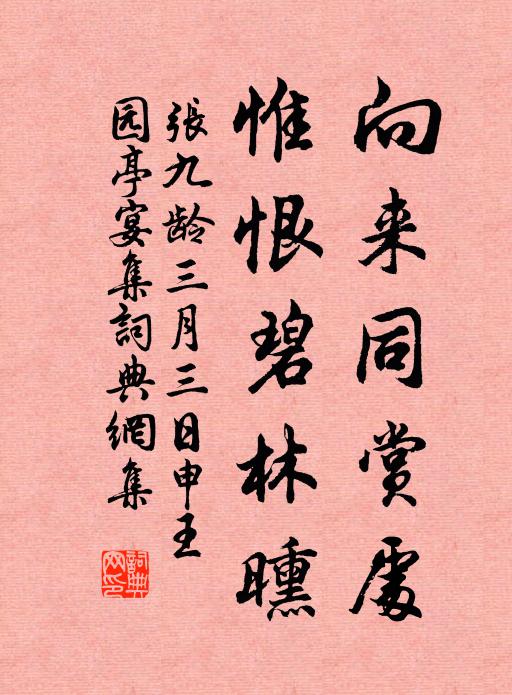 向来同赏處
惟恨碧林曛
張九龄三月三日申王
园亭宴集詞典網集
詞典网印